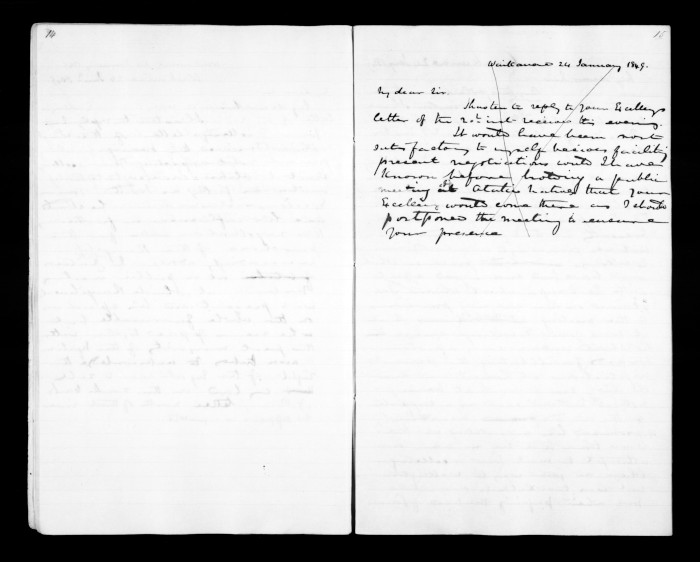 14
15
Waikanae 24 January 1849.
My dear Sir.
I hasten to reply to your Excellency's
letter of the 20th inst. received this evening.
It would have been most
satisfactory to myself besides facilitating
present negotiations could I have
known before holding a public
meeting at Otaki Natives that your
Excellency would come there as I should
postponed the meeting to ensure
your presence